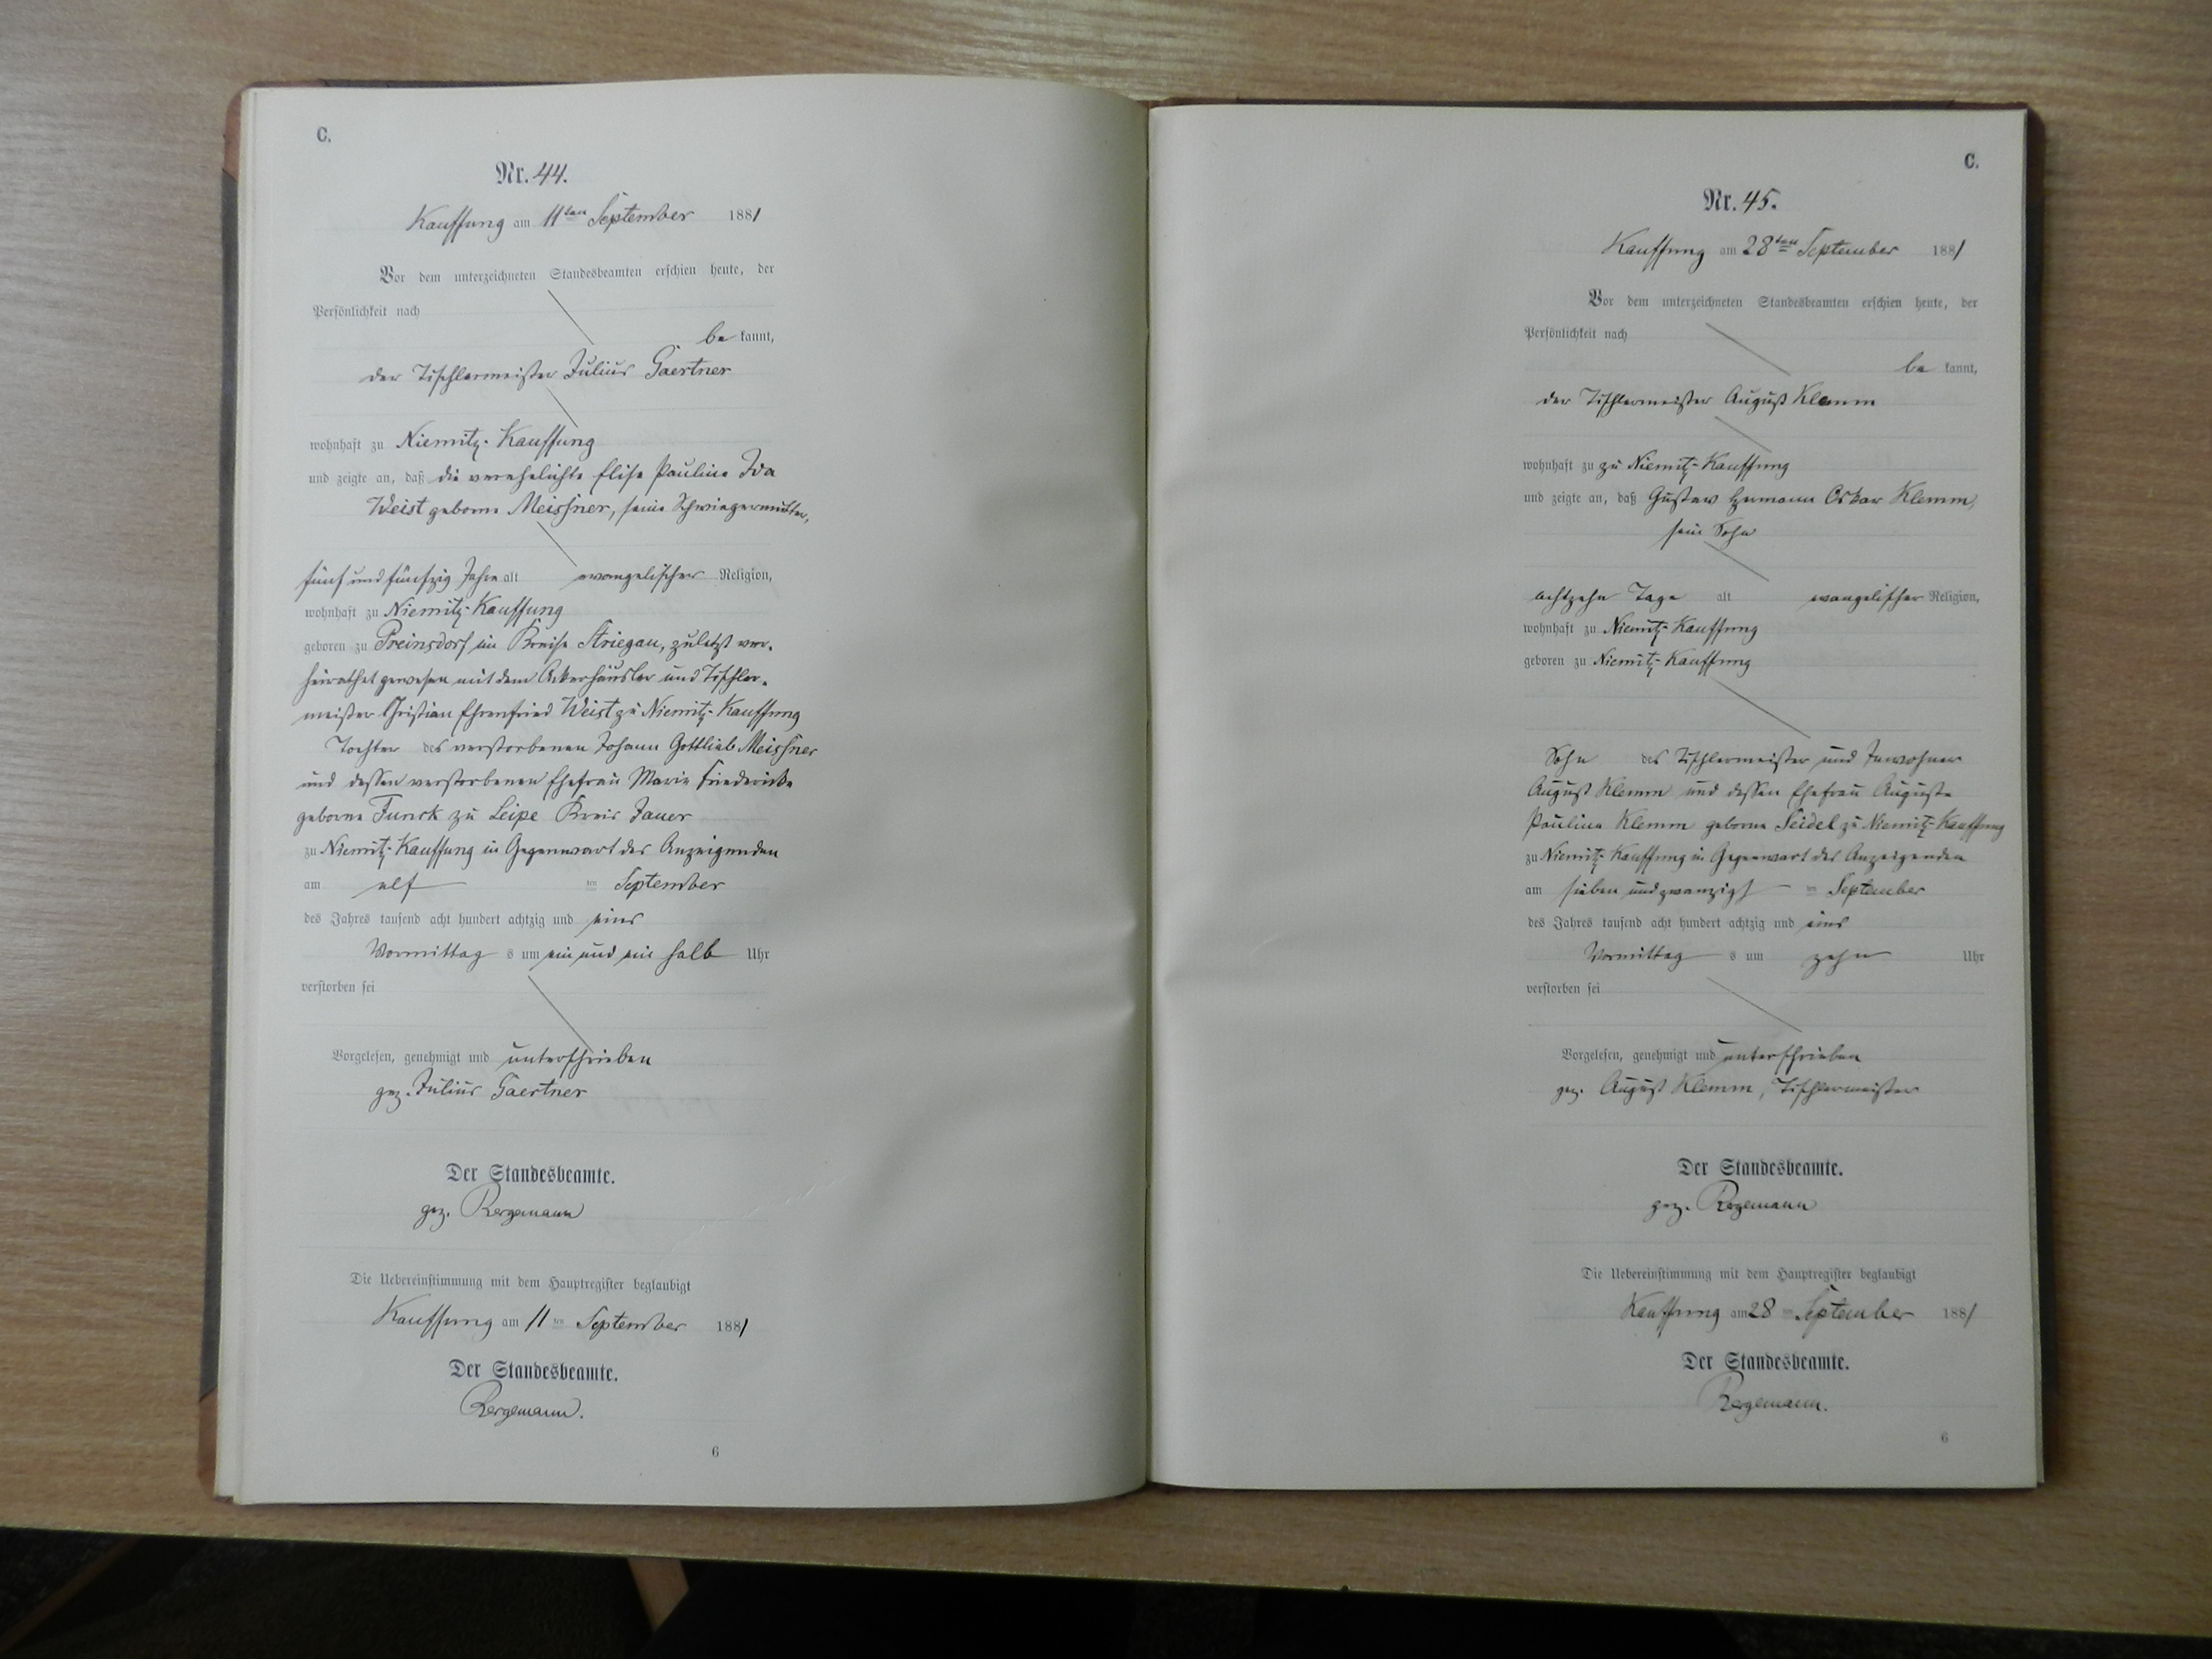 C.
Nr. 44.
Kauffung am 11ten September 1881
Vor dem unterzeichneten Standesbeamten erschien heute, der
Persönlichkeit nach
be kannt,
der Tischlermeister Julius Gaertner
wohnhaft zu Niemitz-Kauffung
und zeigte an, daß die verehelichte Elise Pauline Ida
Weist geborne Meissner, seine Schwiegermutter,
fünf und fünfzig Jahre alt evangelischer Religion,
wohnhaft zu Niemitz-Kauffung
geboren zu im Kreise Striegau, zuletzt ver-
heirathet gewesen mit dem Ackerhäusler und Tischler-
meister Christian Ehrenfried Weist zu Niemitz-Kauffung
Tochter des verstorbenen Johann Gottlieb Meissner
und dessen verstorbenen Ehefrau Marie Friedericke
geborne Funck zu Leipe Kreis Jauer
zu Niemitz-Kauffung in Gegenwart des Anzeigenden
am elf ten September
des Jahres tausend acht hundert achtzig und eins
Vormittag s um ein und ein halb Uhr
verstorben sei
Vorgelesen, genehmigt und unterschrieben
gez. Julius Gaertner
Der Standesbeamte.
gez. Bergemann
Die Uebereinstimmung mit dem Hauptregister beglaubigt
Kauffung am 11 ten September 1881
Der Standesbeamte.
Bergemann.
6
C.
Nr. 45.
Kauffung am 28ten September 1881
Vor dem unterzeichneten Standesbeamten erschien heute, der
Persönlichkeit nach
be kannt,
der Tischlermeister August Klemm
wohnhaft zu zu Niemitz-Kauffung
und zeigte an, daß Gustav Hermann Oskar Klemm,
sein Sohn
achtzehn Tage alt evangelischer Religion,
wohnhaft zu Niemitz-Kauffung
geboren zu Niemitz-Kauffung
Sohn des Tischlermeister und Inwohner
August Klemm und dessen Ehefrau Auguste
Pauline Klemm geborne Seidel zu Niemitz-Kauffung
zu Niemitz-Kauffung in Gegenwart des Anzeigenden
am sieben und zwanzigst ten September
des Jahres tausend acht hundert achtzig und eins
Vormittag s um zehn Uhr
verstorben sei
Vorgelesen, genehmigt und unterschrieben
gez. August Klemm, Tischlermeister
Der Standesbeamte.
gez. Bergemann
Die Uebereinstimmung mit dem Hauptregister beglaubigt
Kauffung am 28 ten September 1881
Der Standesbeamte.
Bergemann.
6